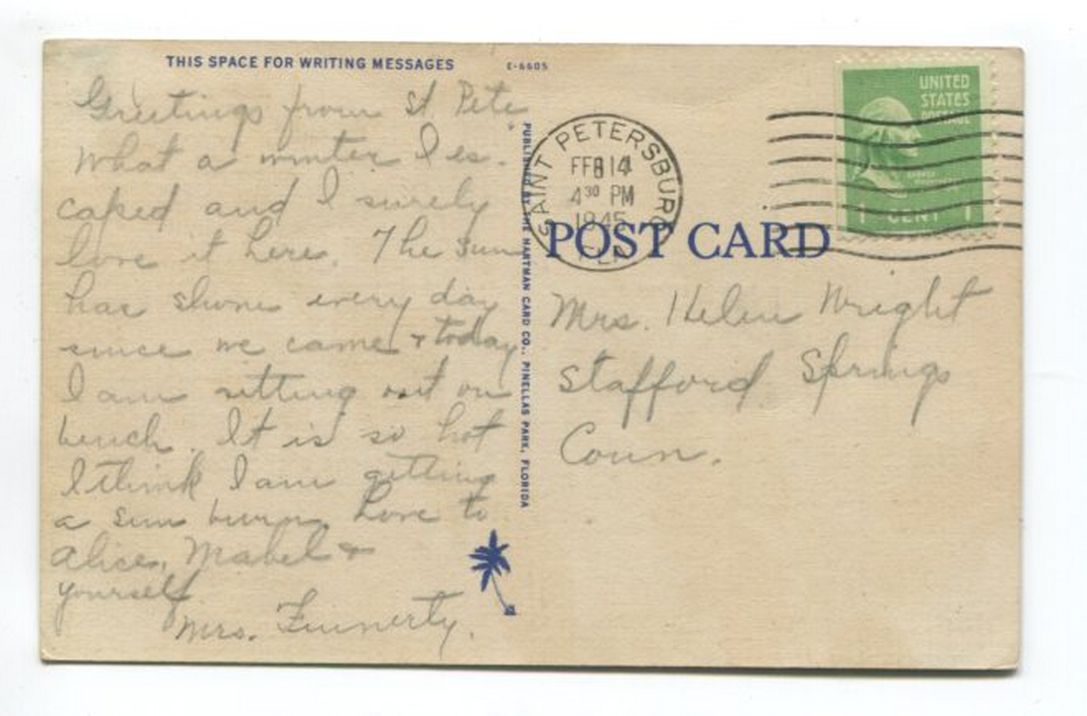 THIS SPACE FOR WRITING MESSAGES
E-6605
Greetings from St Pete.
What a winter I es-
caped and I surely
love it here. The sun
has shone every day
since we came & today
I am sitting out on
bench. It is so hot
I think I am getting
a sun burn. Love to
Alice, Mabel &
yourself
Mrs. Finnerty.
PUBLISHED BY THE HARTMAN CARD CO., PINELLAS PARK, FLORIDA
SAINT PETERSBURG
FEB 14
4 30 PM
1945
POST CARD
UNITED
STATES
POSTAGE
1 CENT 1
Mrs. Helen Wright
Stafford Springs
Conn.